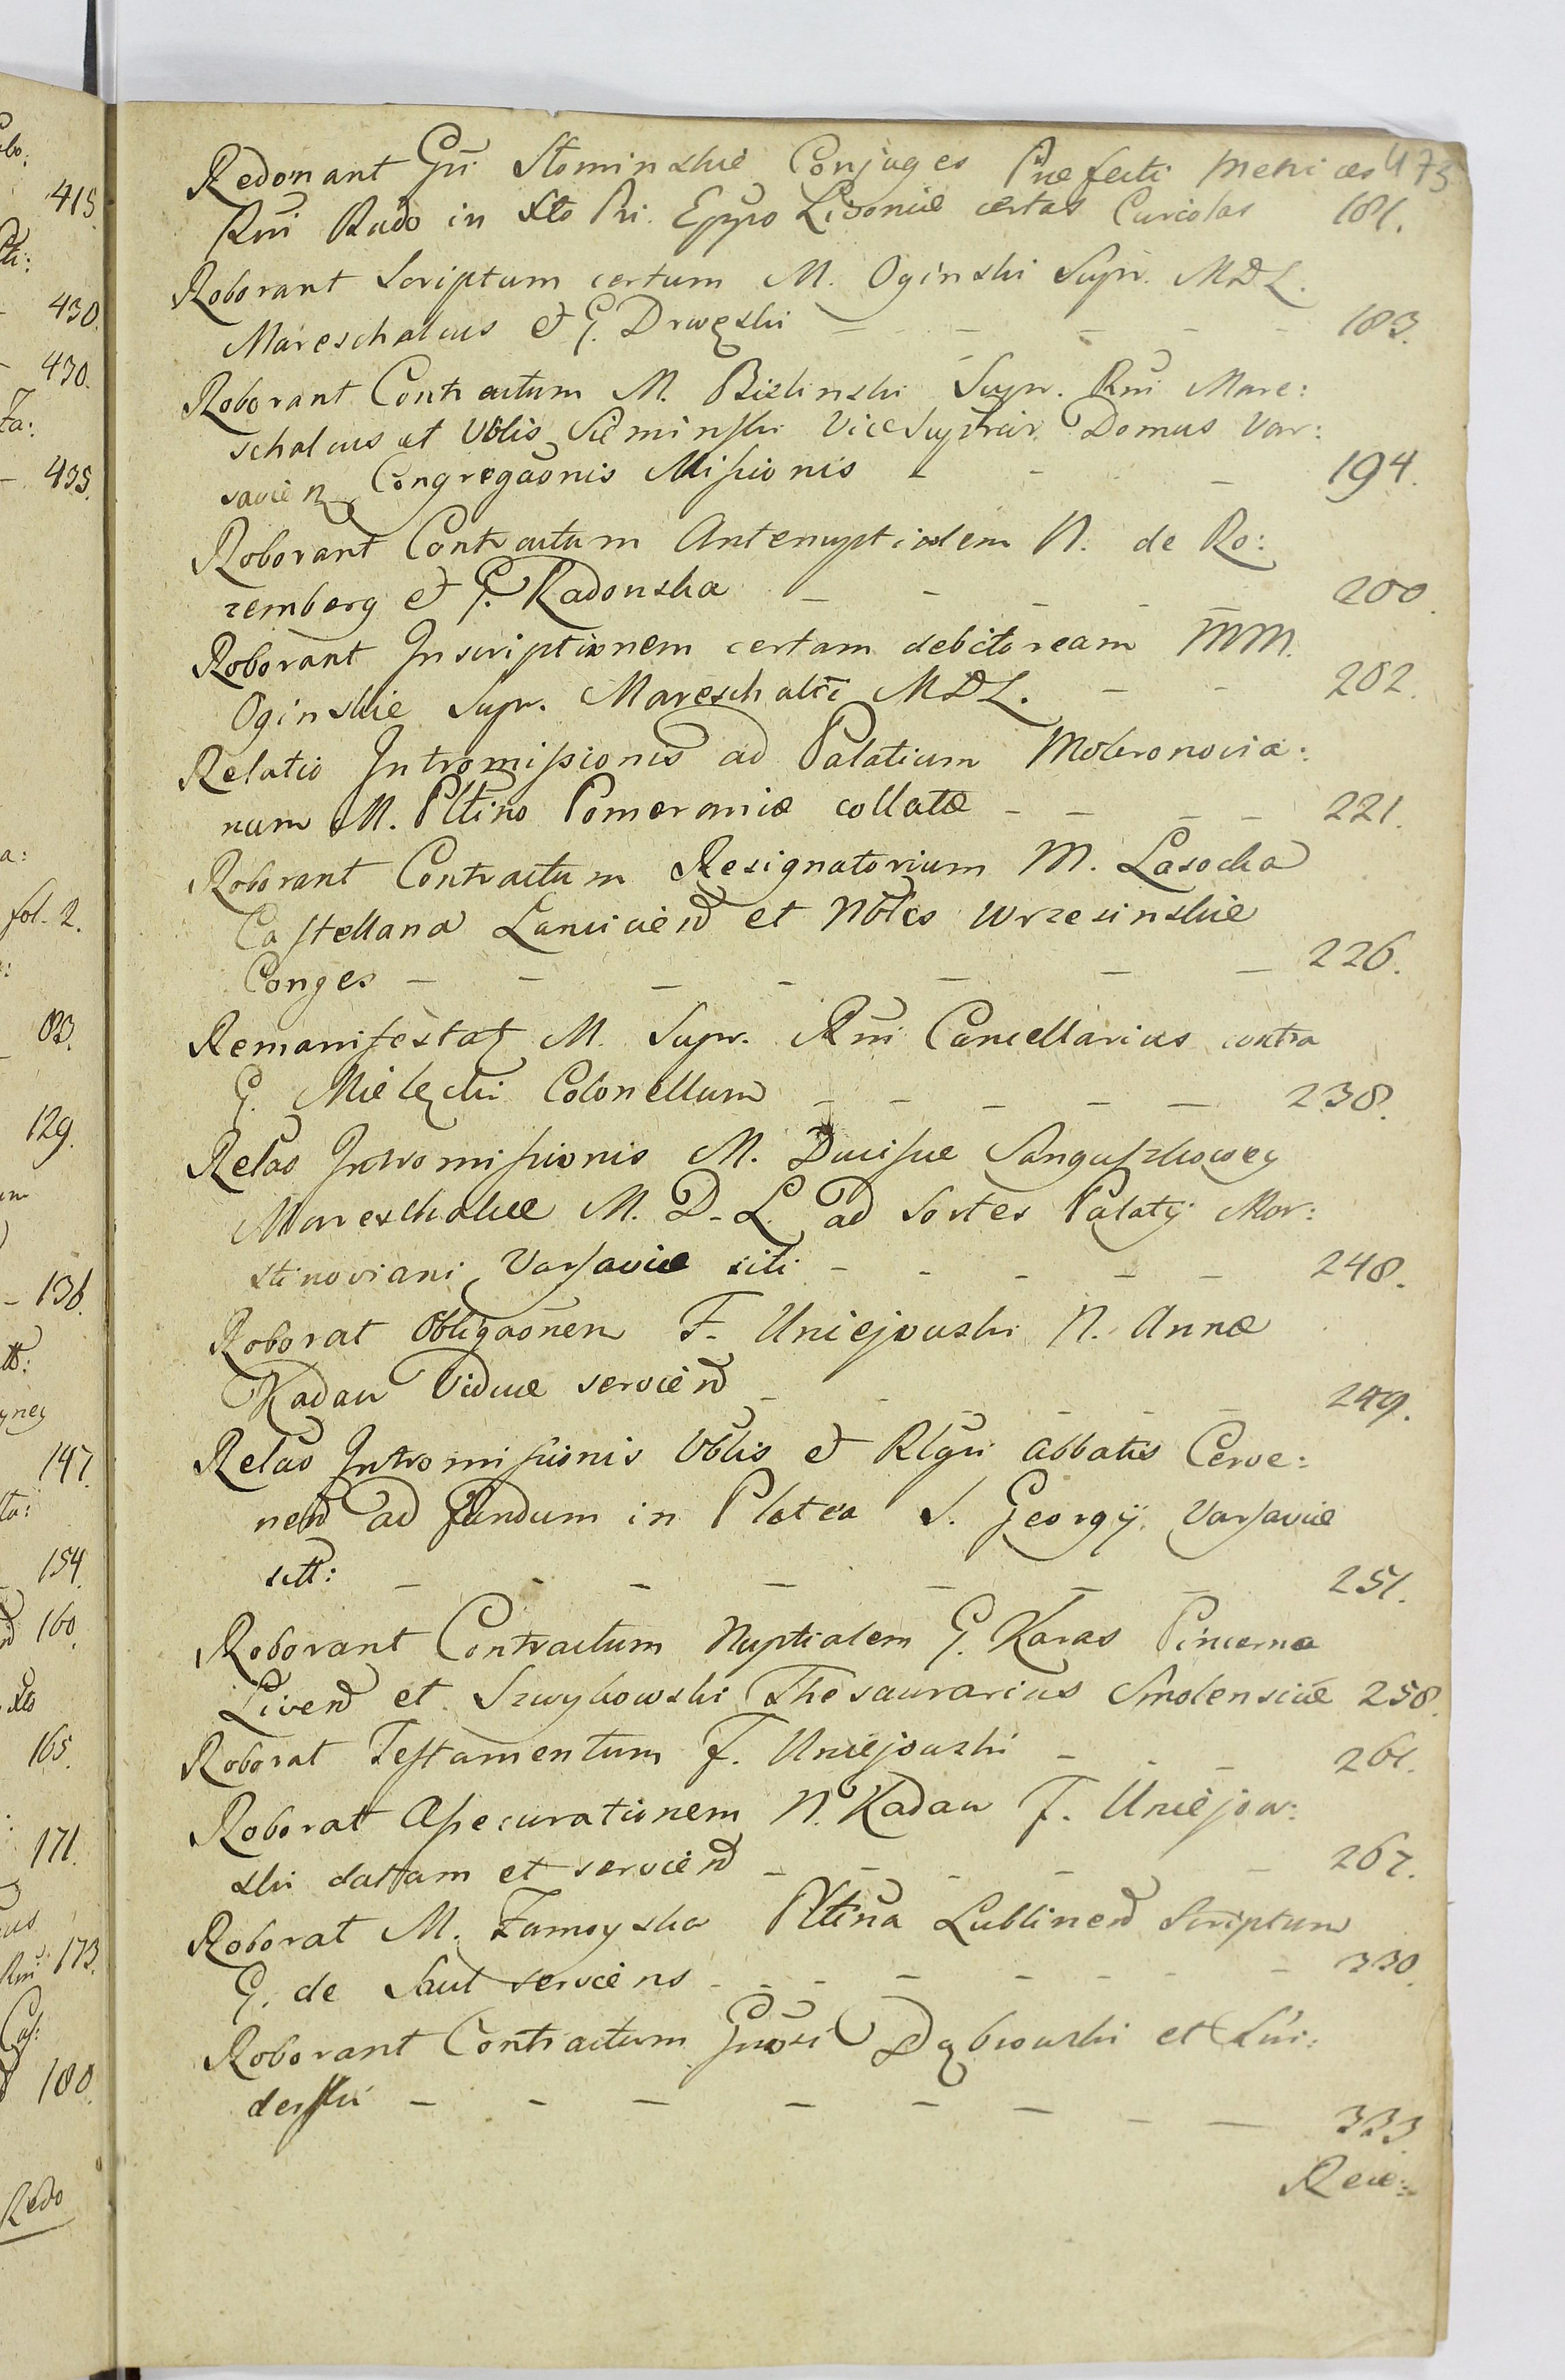 415
430.
430.
435.
fol. 2.
83.
129.
136.
147
154.
160.
165.
171.
173.
180.
Redo
473
Redonant Gn̄i Słominskie Conjuges Præfecti
Rni Rndo in Xto Pri. Eppo Livoniæ certas Curiolas 181.
Roborant Scriptum certum M. Oginski Supr. MDL.
Mareschalcus et G. Drwęski – – – – – 183.
Roborant Contractum M. Bielinski Supr. Rni Mare:
schalcus et Vblis Sieminski Vice Domus Var:
savien Congregaōnis Missionis – – – 194.
Roborant Contractum Antenuptialem N. de Ro:
zemberg et G. Radonska – – – – – 200.
Roborant Inscriptionem certam debitoream MM.
Oginskie Supr. Mareschalci MDL. – – 202.
Relatio Intromissionis ad Palatium Mokronovia:
num M. Pltino Pomeraniæ collatæ – – – – 221.
Roborant Contractum Resignatorium M. Lasocka
Castellana Lancicien et Nbles Wrzesinskie
Conges – – – – – – – 226.
Remanifestat M. Supr. Rni Cancellarius contra
G. Mielęcki Colonellum – – – – – 238.
Relao Intromissionis M. Ducissæ Sanguszkowey
Mareschalcæ M. D. L. ad Sortes Palatij Mor:
stinoviani Varsaviæ siti – – – – – 248.
Roborat Obligaōnem F. Uniejowski N. Annæ
Kadau Viduæ servien – – – – – 249.
Relao Intromissionis Vblis et Rlgsi Abbatis Cerve:
nen ad fundum in Platea S. Georgij Varsaviæ
sitt: – – – – – – – 251.
Roborant Contractum Nuptialem G. Karas Pincerna
Liven et Szwykowski Thesaurarius Smolensciæ 258.
Roborat Testamentum F. Uniejowski – – – 261.
Roborat Assecurationem N. Kadau F. Uniejow:
ski dattam et servien – – – – – 267.
Roborat M. Zamoyska Pltina Lublinen Scriptum
G. de Saut serviens – – – – – – – 330.
Roborant Contractum Gnōsi Dąbrowski et Świ:
derski – – – – – – – – 333.